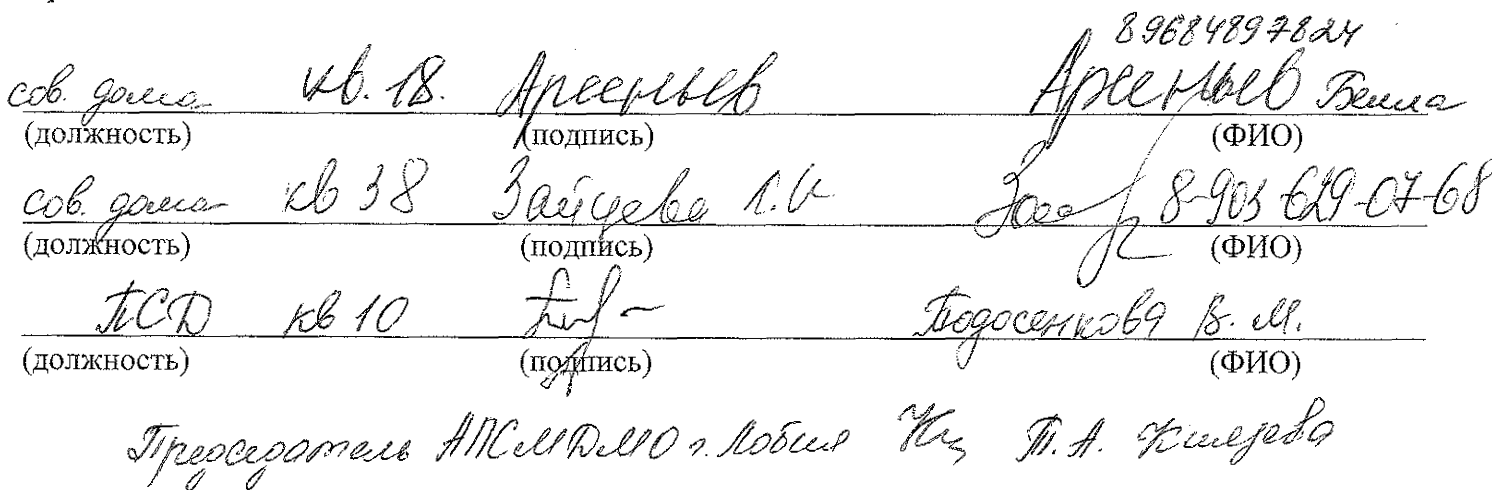 89684897824
сов. дома кв. 18. Арсеньев Арсеньев Белла
(должность) (подпись) (ФИО)
сов. дома кв 38 Зайцева 8-903-629-07-68
(должность) (подпись) (ФИО)
ПСД кв 10 Подосенкова В. М.
(должность) (подпись) (ФИО)
Председатель АПСМДМО г. Лобня Т. А.